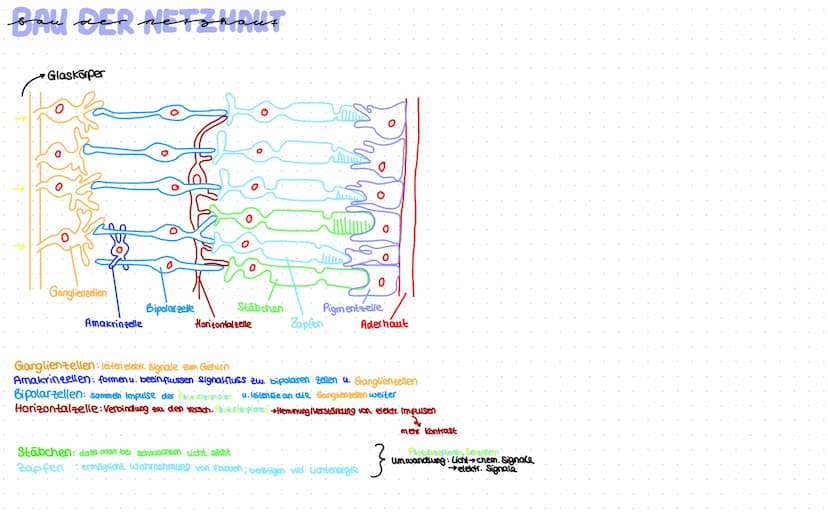 BAU DER NETZHAUT
Glaskörper
Ganglienzellen
Amakrinzelle
Bipolarzelle
Horizontalzelle
Stäbchen
Zapfen
Pigmentzelle
Aderhaut
Ganglienzellen: leiten elektr. Signale zum Gehirn
Amakrinzellen: formen u. beeinflussen Signalfluss zw. bipolaren Zellen u. Ganglienzellen
Bipolarzellen: sammeln Impulse der u. leiten sie an die Ganglienzellen weiter
Horizontalzelle: Verbindung zw. den versch. → Hemmung/Verstärkung von elektr. Impulsen
mehr Kontrast
Stäbchen: dass man bei schwachem Licht sieht
Zapfen : ermöglicht Wahrnehmung von Farben; benötigen viel Lichtenergie
Umwandlung: Licht → chem. Signale
→ elektr. Signale